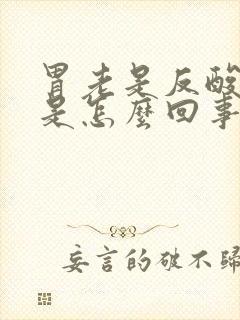 胃老是反酸
是怎麼回事
妄言的破不歸